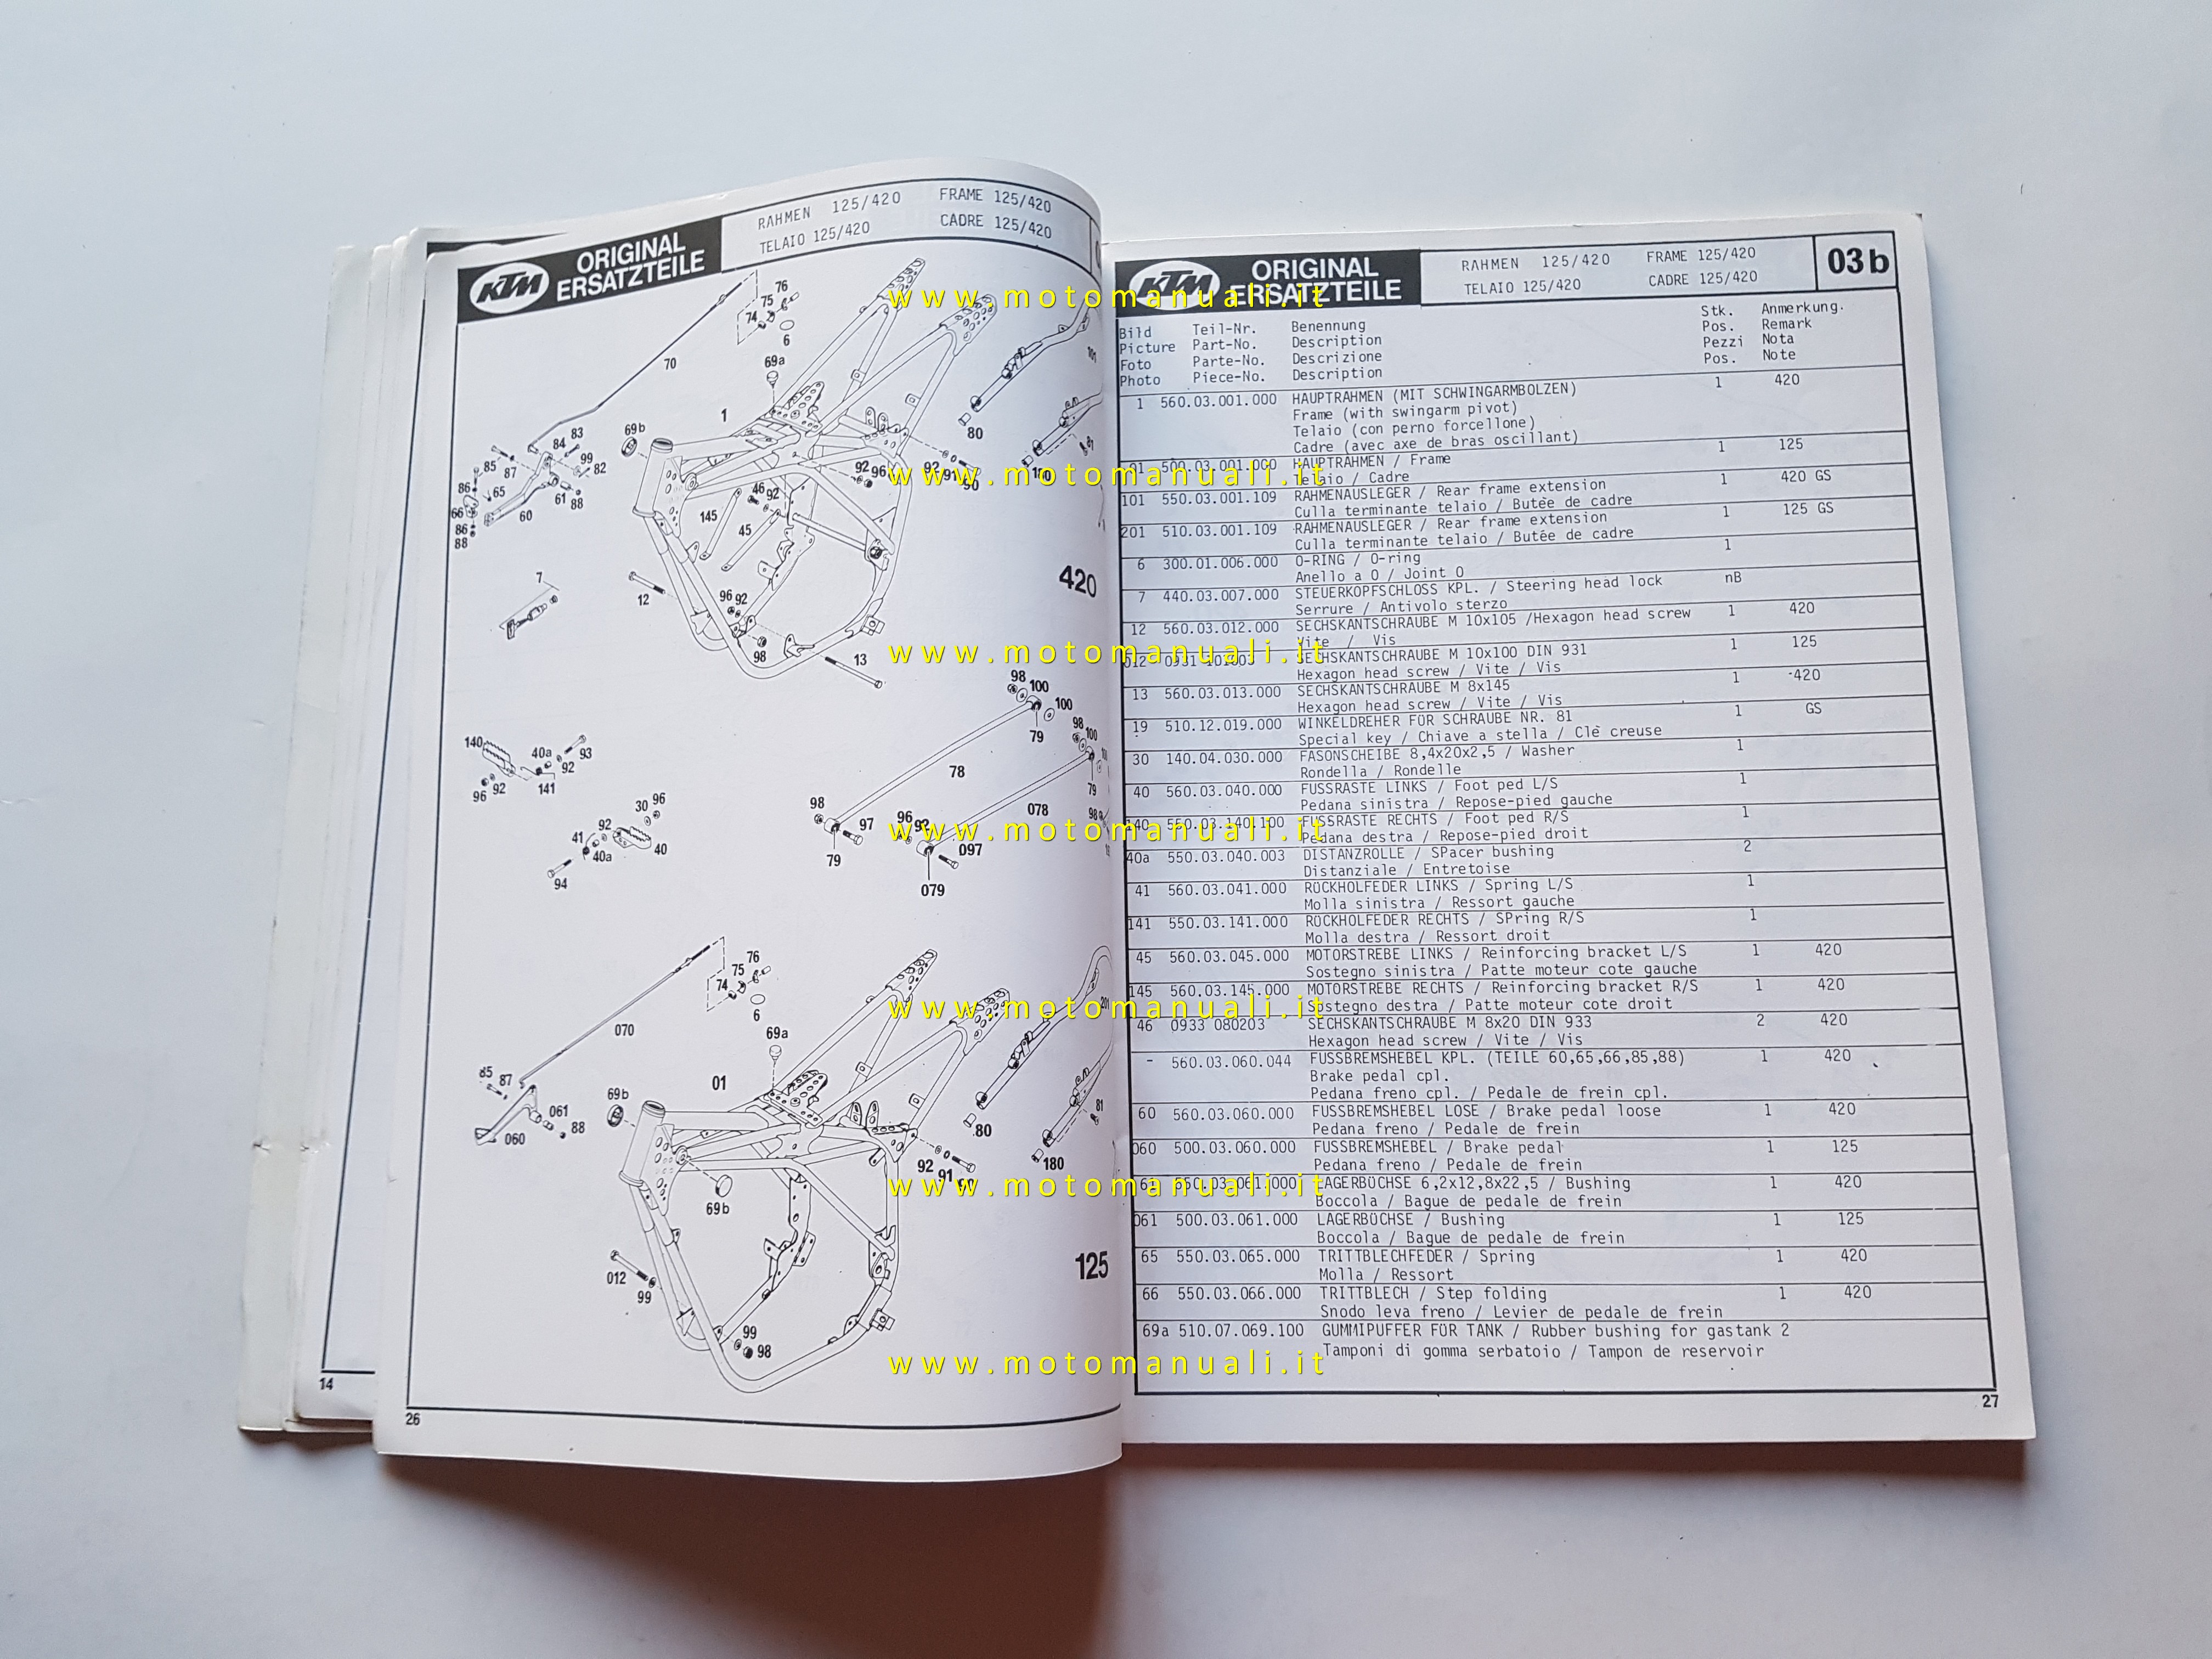 KTM ORIGINAL ERSATZTEILE
RAHMEN 125/420 FRAME 125/420
TELAIO 125/420 CADRE 125/420
70
74 75 76
6
69a
1
69b
83
84
99
82
85
87
86
65
66
60
61
88
86
88
7
12
145
46
92
45
92 96
92
91
90
80
100
101
96 92
98
13
420
140
40a
93
92
141
96 92
30 96
92
41
40a
40
94
98 100
100
79
78
98
100
79
078
98
97
79
96 92
097
079
98
070
74 75 76
6
69a
01
69b
85 87
061
060
88
80
201
81
180
92
91
90
69b
012
99
99
98
125
14
26
KTM ORIGINAL ERSATZTEILE
RAHMEN 125/420 FRAME 125/420
TELAIO 125/420 CADRE 125/420
03b
Bild Teil-Nr. Benennung Stk. Anmerkung.
Picture Part-No. Description Pos. Remark
Foto Parte-No. Descrizione Pezzi Nota
Photo Piece-No. Description Pos. Note
1 560.03.001.000 HAUPTRAHMEN (MIT SCHWINGARMBOLZEN) 1 420
Frame (with swingarm pivot)
Telaio (con perno forcellone)
Cadre (avec axe de bras oscillant)
01 500.03.001.000 HAUPTRAHMEN / Frame 1 125
Telaio / Cadre
101 550.03.001.109 RAHMENAUSLEGER / Rear frame extension 1 420 GS
Culla terminante telaio / Butée de cadre
201 510.03.001.109 RAHMENAUSLEGER / Rear frame extension 1 125 GS
Culla terminante telaio / Butée de cadre
6 300.01.006.000 O-RING / O-ring 1
Anello a O / Joint O
7 440.03.007.000 STEUERKOPFSCHLOSS KPL. / Steering head lock nB
Serrure / Antivolo sterzo
12 560.03.012.000 SECHSKANTSCHRAUBE M 10x105 /Hexagon head screw 1 420
Vite / Vis
012 0931 101003 SECHSKANTSCHRAUBE M 10x100 DIN 931 1 125
Hexagon head screw / Vite / Vis
13 560.03.013.000 SECHSKANTSCHRAUBE M 8x145 1 420
Hexagon head screw / Vite / Vis
19 510.12.019.000 WINKELDREHER FÜR SCHRAUBE NR. 81 1 GS
Special key / Chiave a stella / Clè creuse
30 140.04.030.000 FASONSCHEIBE 8,4x20x2,5 / Washer 1
Rondella / Rondelle
40 560.03.040.000 FUSSRASTE LINKS / Foot ped L/S 1
Pedana sinistra / Repose-pied gauche
140 550.03.140.100 FUSSRASTE RECHTS / Foot ped R/S 1
Pedana destra / Repose-pied droit
40a 550.03.040.003 DISTANZROLLE / SPacer bushing 2
Distanziale / Entretoise
41 560.03.041.000 RÜCKHOLFEDER LINKS / Spring L/S 1
Molla sinistra / Ressort gauche
141 550.03.141.000 RÜCKHOLFEDER RECHTS / SPring R/S 1
Molla destra / Ressort droit
45 560.03.045.000 MOTORSTREBE LINKS / Reinforcing bracket L/S 1 420
Sostegno sinistra / Patte moteur cote gauche
145 560.03.145.000 MOTORSTREBE RECHTS / Reinforcing bracket R/S 1 420
Sostegno destra / Patte moteur cote droit
46 0933 080203 SECHSKANTSCHRAUBE M 8x20 DIN 933 2 420
Hexagon head screw / Vite / Vis
- 560.03.060.044 FUSSBREMSHEBEL KPL. (TEILE 60,65,66,85,88) 1 420
Brake pedal cpl.
Pedana freno cpl. / Pedale de frein cpl.
60 560.03.060.000 FUSSBREMSHEBEL LOSE / Brake pedal loose 1 420
Pedana freno / Pedale de frein
060 500.03.060.000 FUSSBREMSHEBEL / Brake pedal 1 125
Pedana freno / Pedale de frein
61 550.03.061.000 LAGERBÜCHSE 6,2x12,8x22,5 / Bushing 1 420
Boccola / Bague de pedale de frein
061 500.03.061.000 LAGERBÜCHSE / Bushing 1 125
Boccola / Bague de pedale de frein
65 550.03.065.000 TRITTBLECHFEDER / Spring 1 420
Molla / Ressort
66 550.03.066.000 TRITTBLECH / Step folding 1 420
Snodo leva freno / Levier de pedale de frein
69a 510.07.069.100 GUMMIPUFFER FÜR TANK / Rubber bushing for gastank 2
Tamponi di gomma serbatoio / Tampon de reservoir
27
www.motomanuali.it
www.motomanuali.it
www.motomanuali.it
www.motomanuali.it
www.motomanuali.it
www.motomanuali.it
www.motomanuali.it